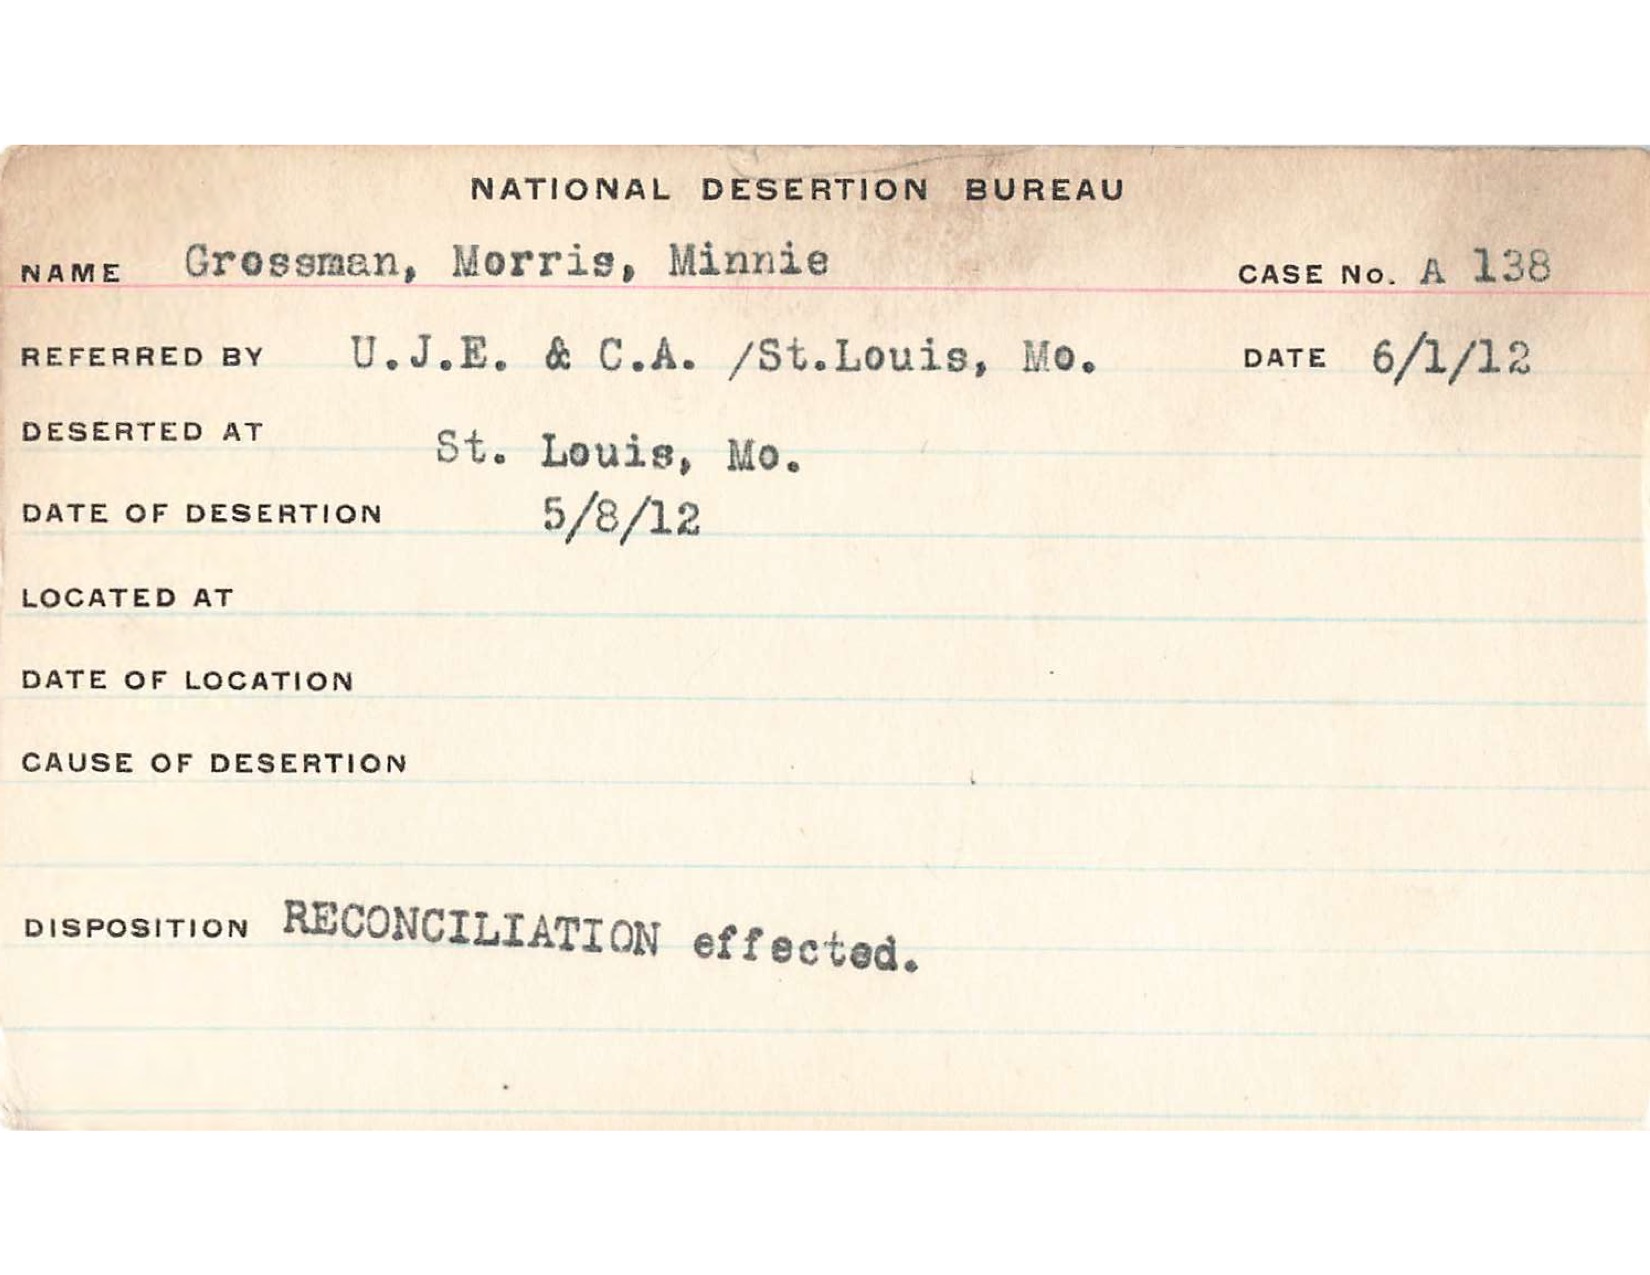 NATIONAL DESERTION BUREAU
NAME Grossman, Morris, Minnie CASE No. A 138
REFERRED BY U.J.E. & C.A. /St.Louis, Mo. DATE 6/1/12
DESERTED AT St. Louis, Mo.
DATE OF DESERTION 5/8/12
LOCATED AT
DATE OF LOCATION
CAUSE OF DESERTION
DISPOSITION RECONCILIATION effected.